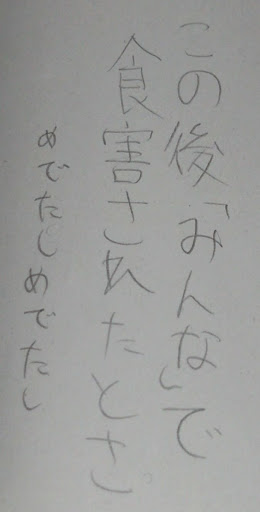 この後「みんな」で
食害されたとさ。
めでたしめでたし